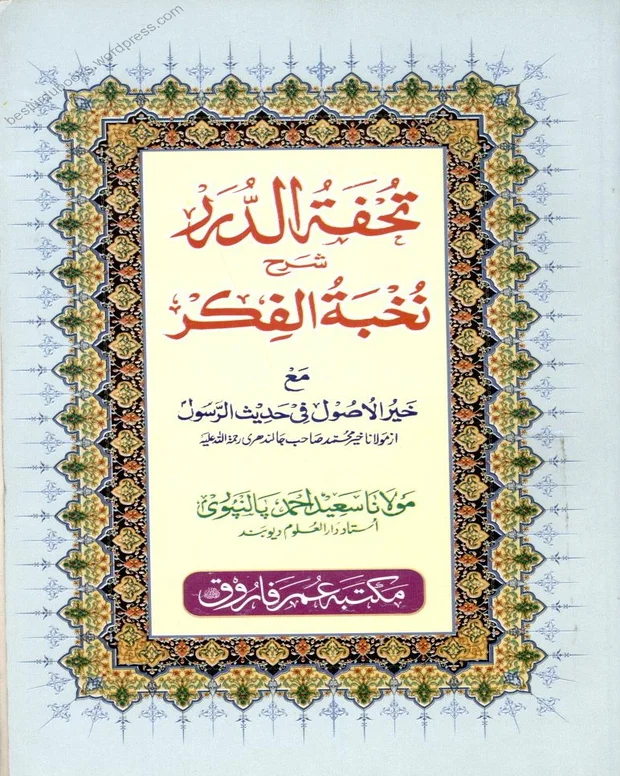 besturdubooks.wordpress.com
تُحْفَةُ الدُّرَرْ
شرح
نُخْبَةُ الفِكَرْ
مَعَ
خَيرُ الاُصُول فِی حَدِیث الرَّسُول
از مولانا خیر محمد صاحب جالندھری رحمۃ اللہ علیہ
مولانا سعید احمد پالنپوری
اُستاد دارالعلوم دیوبند
مکتبہ عمر فاروق